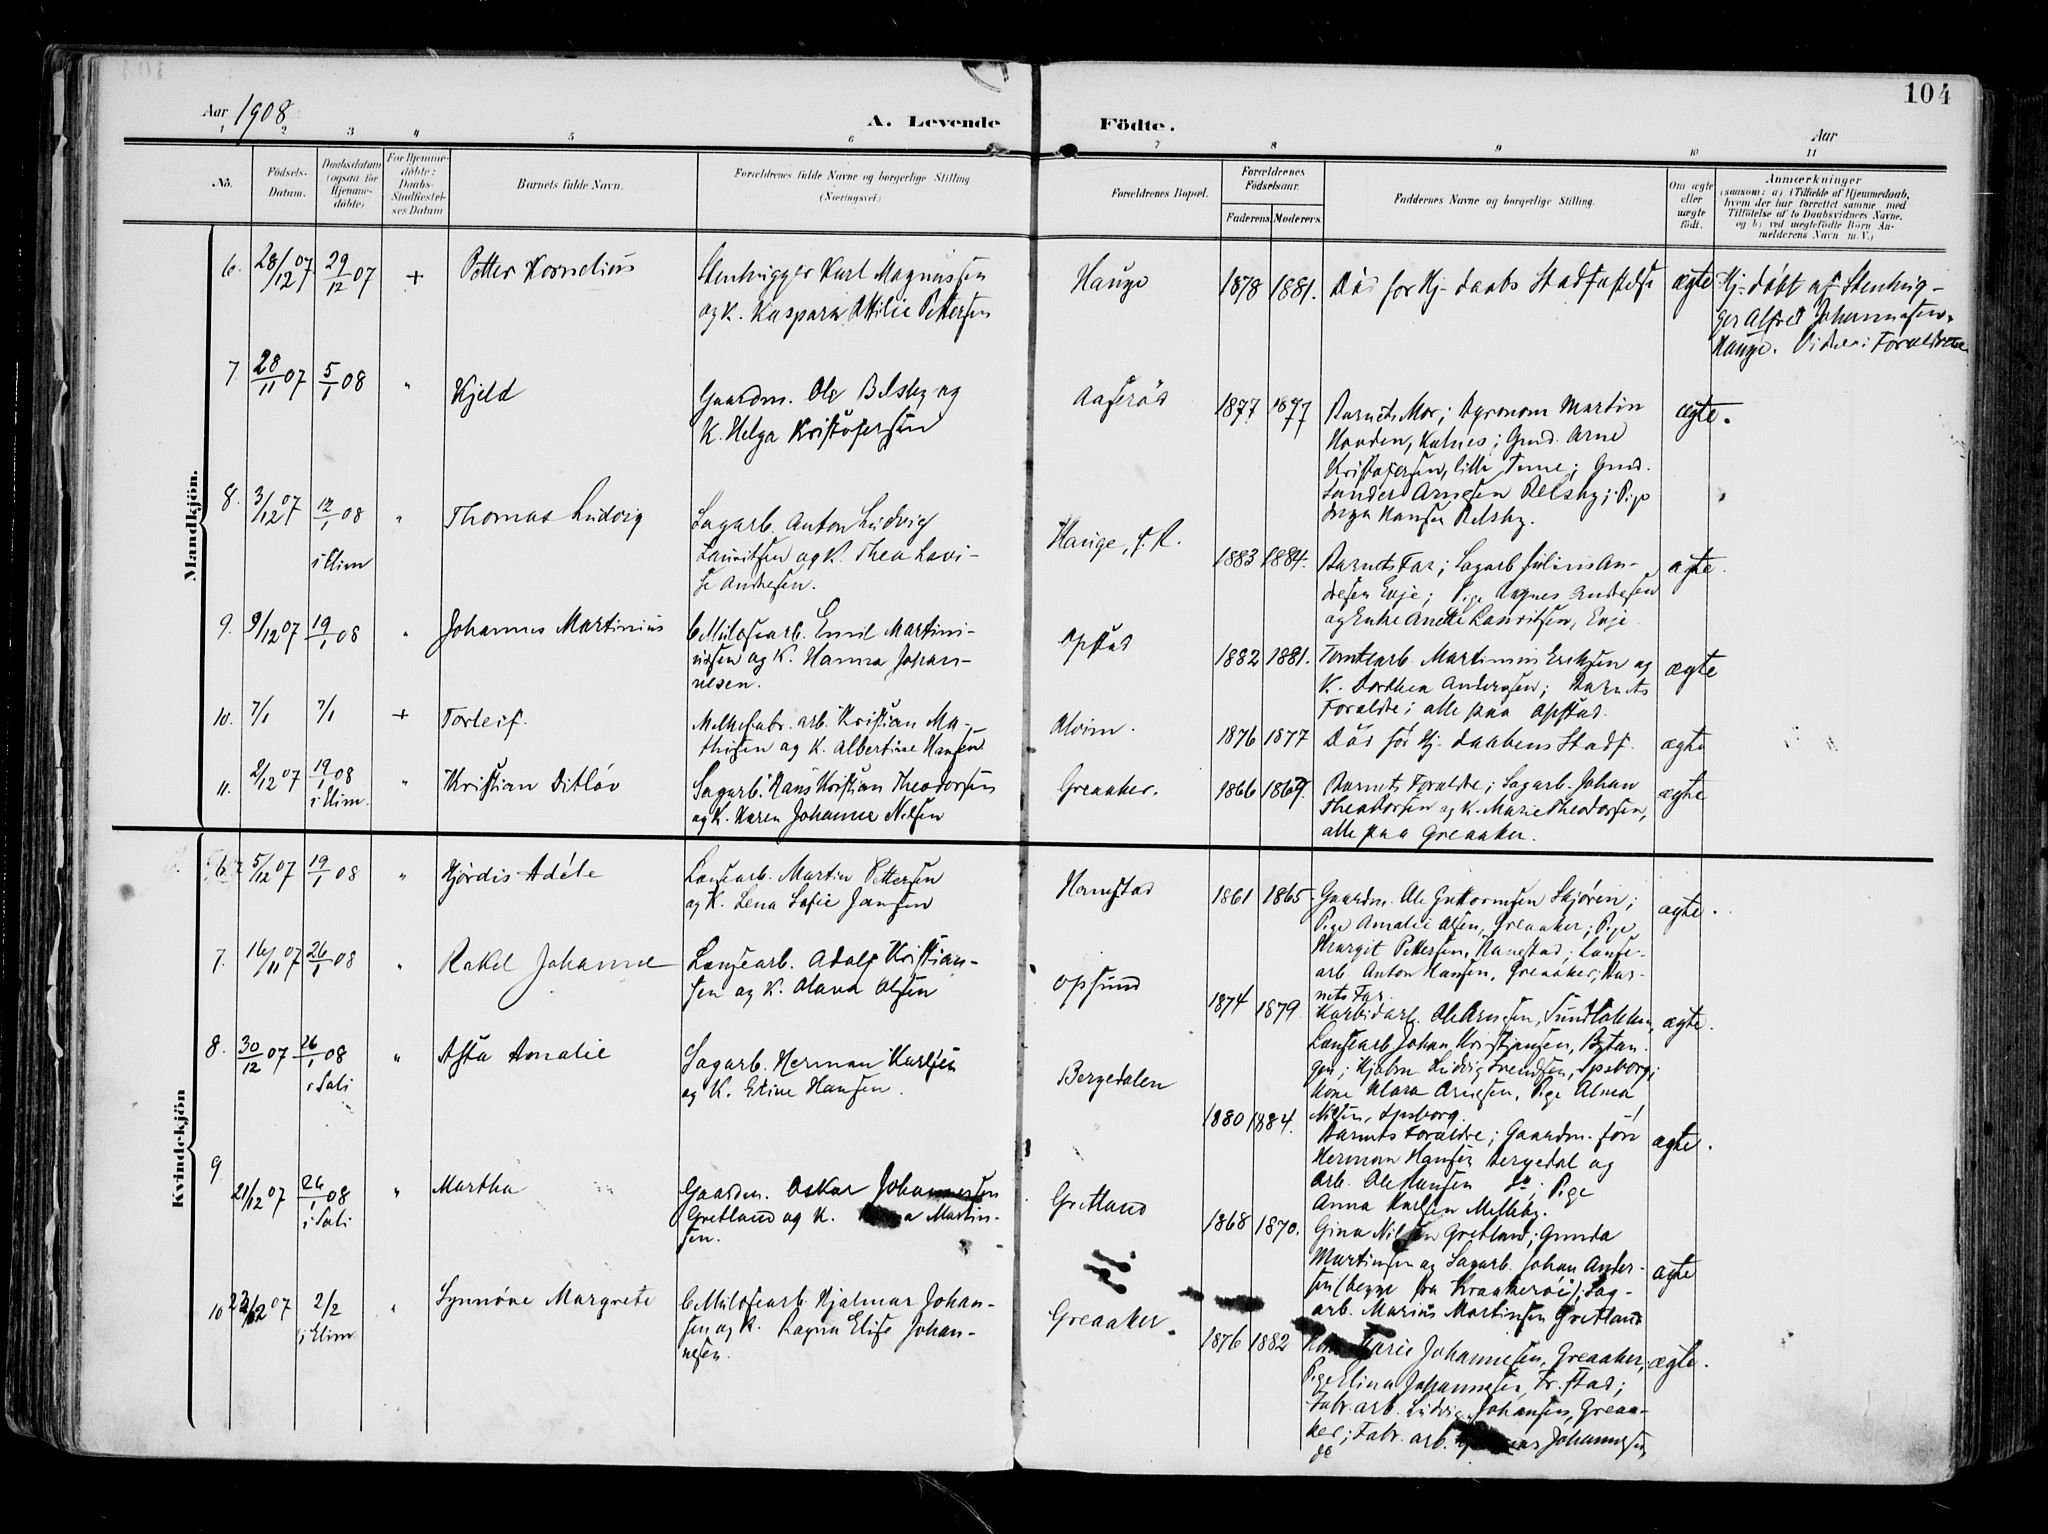 104
Aar 1908
A. Levende Födte.
Aar
1 2 3 4 5 6 7 8 9 10 11
No.
Födsels-Datum.
Daabsdatum (ogsaa for Hjemme-döbte)
For Hjemme-döbte: Daabs-Stadfæstel-ses Datum
Barnets fulde Navn.
Forældrenes fulde Navne og borgerlige Stilling. (Næringsvei.)
Forældrenes Bopæl.
Forældrenes Födselsaar.
Faderens. Moderens.
Faddernes Navne og borgerlige Stilling.
Om ægte eller uægte födt.
Anmærkninger
(saasom: a) i Tilfælde af Hjemmedaab,
hvem der har forrettet samme med
Tilföielse af to Daabsvidners Navne.
og b) ved uægtefödte Börn An-
melderens Navn m.V.)
Mandkjön.
6. 28/12 07 29/12 07 + Petter Kornelius
Stenhugger Karl Magnussen
og K. Kaspara Ottilie Pettersen
Hauge 1878 1881. Död för Hj-daabs Stadfæstelse ægte
Hj-döbt af Stenhug-
ger Alfred Johannesen,
Hauge. Vidner: Foraldrene
7 28/11 07 5/1 08 " Kjeld
Gaardm. Ole Belsby og
K. Helga Kristofersen
Aaseröd 1877. 1877
Barnets Mor; Agronom Martin
Hovden, Kalnes; Gmd. Arne
Kristofersen, lille Tune; Gmd.
Sander Arnesen Belsby; Pige
Inga Hansen Belsby.
ægte.
8. 3/12 07 12/1 08 i Elim " Thomas Ludvig
Sagarb. Anton Ludvig
Lauritsen og K. Thea Lovi-
se Andresen.
Hauge, f. R. 1883 1884.
Barnets Far; Sagarb Julius An-
dresen Enje; Pige Agnes Andresen
og Enke Anette Lauritsen, Enje
ægte.
9. 9/12 07 19/1 08 " Johannes Martinius
Cellulosearb. Emil Martini-
ussen og K. Hanna Johan-
nesen.
Opstad 1882 1881.
Tomtearb. Martinius Eriksen og
K. Dorthea Andersen; Barnets
Foraldre; alle paa Opstad.
ægte
10. 7/1 7/1 + Torleif.
Melkefabr. arb. Kristian Ma-
thisen og K. Albertine Hansen
Alvim. 1876 1877 Död för Hj. daabens Stadf. ægte
11. 2/12 07 19/1 08 i Elim. " Kristian Ditlöv
Sagarb. Hans Kristian Theodorsen
og K. Karen Johanne Nilsen
Greaaker. 1866 1869.
Barnets Foraldre; Sagarb. Johan
Theodorsen og K. Marie Theodorsen,
alle paa Greaaker.
ægte
Kvindekjön
6 5/12 07 19/1 08 " Hjördis Adéle
Lænsearb. Martin Pettersen
og K. Lena Sofie Jansen
Hanestad 1861 1865.
Gaardm. Ole Guttormsen Skjören;
Pige Amalie Olsen, Greaaker; Pige
Margit Pettersen, Hanestad; Lænse-
arb. Anton Hansen, Greaaker; Bar-
nets Far.
ægte.
7. 16/11 07 26/1 08 " Rakel Johanne
Lænsearb. Adolf Kristian-
sen og K. Olava Olsen
Opsund 1874 1879.
Karbidarb. Ole Arnesen, Sundlökken,
Lænsearb Johan Kristjansen, Bytan-
gen; Kjøbm Ludvig Svendsen, Spsborg;
Kone Klara Arnesen, Pige Alma
Nilsen, Spsborg.
ægte.
8. 30/12 07 26/1 08 i Soli " Asta Amalie
Sagarb. Herman Karlsen
og K. Eline Hansen.
Bergedalen 1880 1884.
Barnets Foraldre; Gaardm.för!
Herman Hansen Bergedal og
Arb. Ole Hansen Do; Pige
Anna Karlsen Melleby.
ægte.
9 21/12 07 26/1 08 i Soli " Martha
Gaardm. Oskar Johannessen
Gretland og K. Martin-
sen.
Gretland 1868 1870.
Gina Nilsen Gretland; Gunda
Martinsen og Sagarb. Johan Ander-
sen (begge fra Kraakeröi); Sag-
arb. Marius Martinsen Gretland
ægte
10 22/12 07 2/2 i Elim " Synnöve Margrete
Cellulosearb. Hjalmar Johan-
sen og K. Ragna Elise Johan-
nesen.
Greaaker. 1876 1882
Marie Johannesen, Greaaker,
Pige Elina Johannesen, Fr.stad;
Fabr.arb. Ludvig Johansen, Greaa-
ker; Fabr. arb. Johannesen,
ds
ægte.